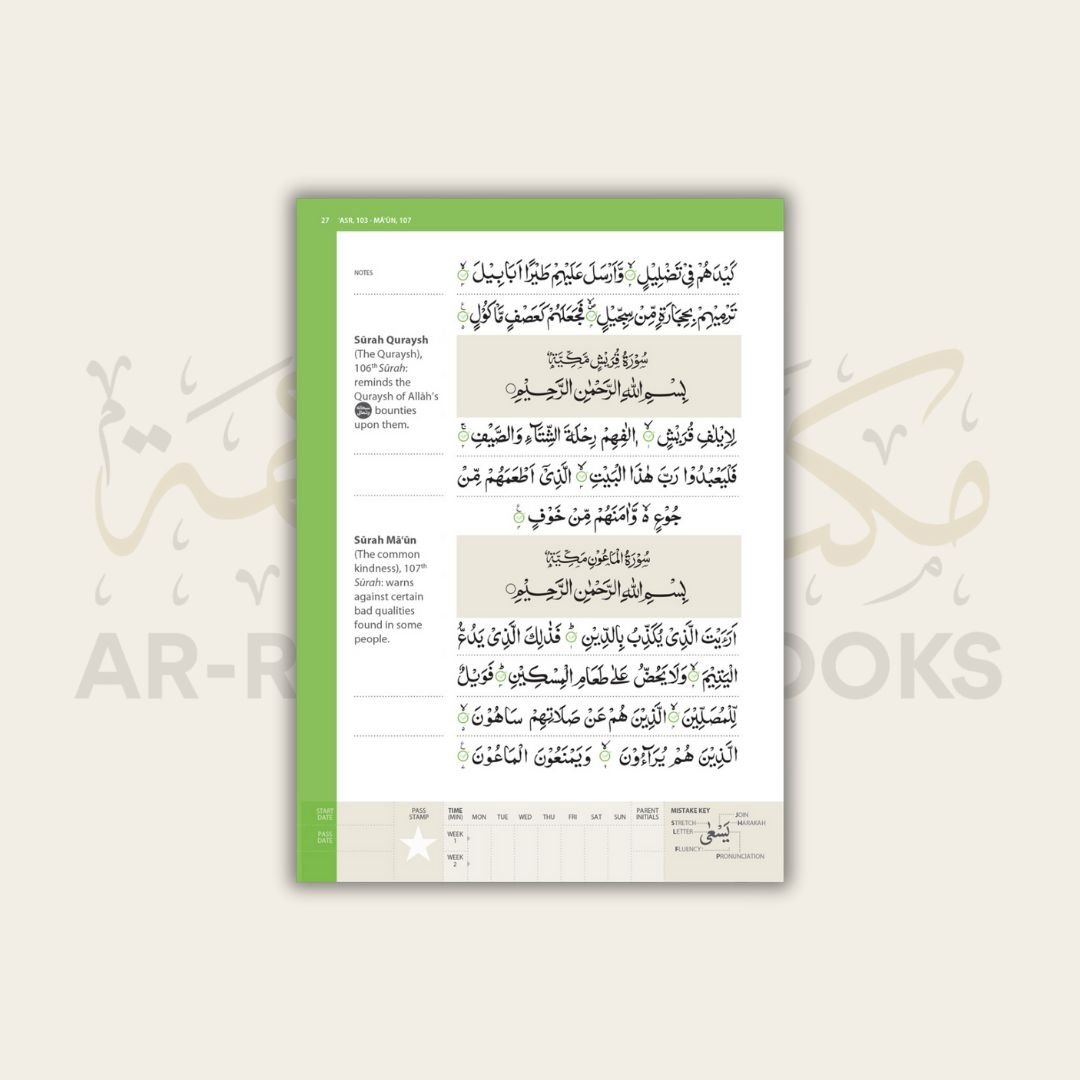 27 ʿASR, 103 - MĀʿŪN, 107
NOTES
كَيْدَهُمْ فِيْ تَضْلِيْلٍ ۙ وَّاَرْسَلَ عَلَيْهِمْ طَيْرًا اَبَابِيْلَ ۙ
تَرْمِيْهِمْ بِحِجَارَةٍ مِّنْ سِجِّيْلٍ ۙ فَجَعَلَهُمْ كَعَصْفٍ مَّاْكُوْلٍ
Sūrah Quraysh
(The Quraysh),
106th Sūrah:
reminds the
Quraysh of Allāh's
bounties
upon them.
سُوْرَةُ قُرَيْشٍ مَكِّيَّةٌ
بِسْمِ اللّٰهِ الرَّحْمٰنِ الرَّحِيْمِ
لِاِيْلٰفِ قُرَيْشٍ ۙ اٖلٰفِهِمْ رِحْلَةَ الشِّتَآءِ وَالصَّيْفِ
فَلْيَعْبُدُوْا رَبَّ هٰذَا الْبَيْتِ ۙ الَّذِيْٓ اَطْعَمَهُمْ مِّنْ
جُوْعٍ ەۙ وَّاٰمَنَهُمْ مِّنْ خَوْفٍ
Sūrah Māʿūn
(The common
kindness), 107th
Sūrah: warns
against certain
bad qualities
found in some
people.
سُوْرَةُ الْمَاعُوْنِ مَكِّيَّةٌ
بِسْمِ اللّٰهِ الرَّحْمٰنِ الرَّحِيْمِ
اَرَءَيْتَ الَّذِيْ يُكَذِّبُ بِالدِّيْنِ ؕ فَذٰلِكَ الَّذِيْ يَدُعُّ
الْيَتِيْمَ ۙ وَلَا يَحُضُّ عَلٰى طَعَامِ الْمِسْكِيْنِ ؕ فَوَيْلٌ
لِّلْمُصَلِّيْنَ ۙ الَّذِيْنَ هُمْ عَنْ صَلَاتِهِمْ سَاهُوْنَ ۙ
الَّذِيْنَ هُمْ يُرَآءُوْنَ ۙ وَيَمْنَعُوْنَ الْمَاعُوْنَ
START DATE
PASS DATE
PASS STAMP
TIME (MIN) MON TUE WED THU FRI SAT SUN
WEEK 1
WEEK 2
PARENT INITIALS
MISTAKE KEY
JOIN
STRETCH HARAKAH
LETTER يَسْعٰى
FLUENCY
PRONUNCIATION
AR-R
OOKS